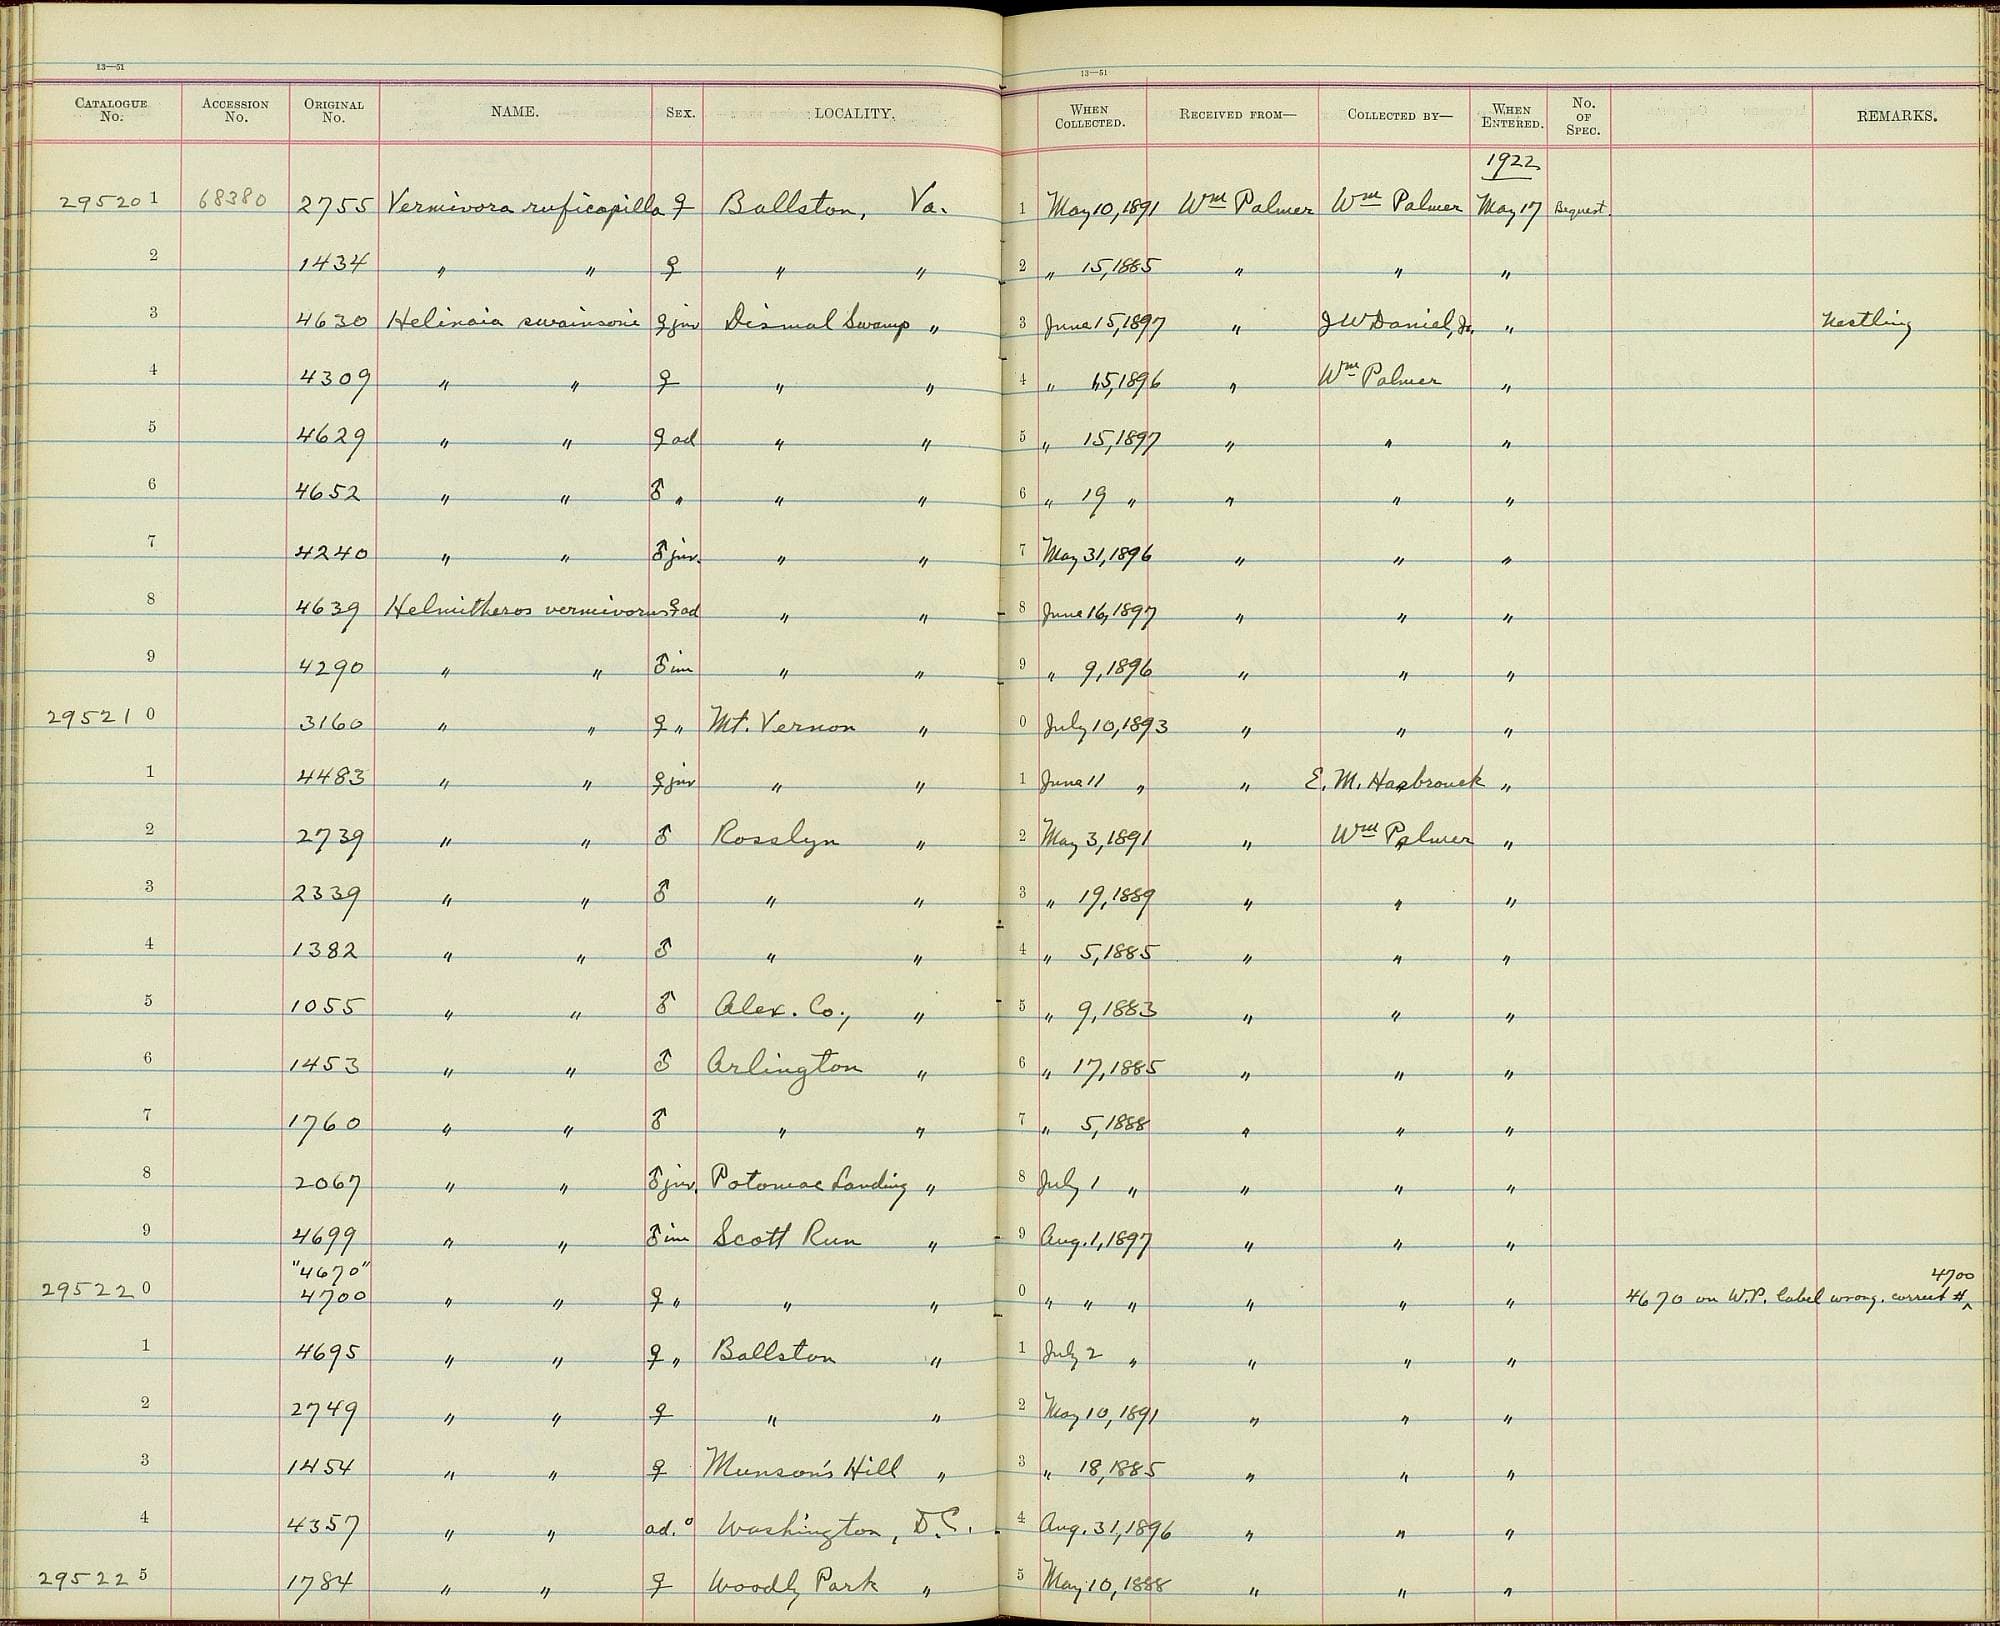 13—51 13—51
CATALOGUE No. ACCESSION No. ORIGINAL No. NAME. SEX. LOCALITY. WHEN COLLECTED. RECEIVED FROM— COLLECTED BY— WHEN ENTERED. No. OF SPEC. REMARKS.
1922
29520 1 68380 2755 Vermivora ruficapilla ♀ Ballston, Va. 1 May 10, 1891 Wm Palmer Wm Palmer May 17 Bequest.
2 1434 " " ♀ " " 2 " 15, 1885 " " "
3 4630 Helinaia swainsoni ♀ juv Dismal Swamp " 3 June 15, 1897 " J W Daniel, Jr. " Nestling
4 4309 " " ♀ " " 4 " 15, 1896 " Wm Palmer "
5 4629 " " ♀ ad " " 5 " 15, 1897 " " "
6 4652 " " ♂ " " " 6 " 19 " " " "
7 4240 " " ♂ juv. " " 7 May 31, 1896 " " "
8 4639 Helmitheros vermivorus ♀ ad " " 8 June 16, 1897 " " "
9 4290 " " ♂ im " " 9 " 9, 1896 " " "
29521 0 3160 " " ♀ " Mt. Vernon " 0 July 10, 1893 " " "
1 4483 " " ♀ juv " " 1 June 11 " " E. M. Hasbrouck "
2 2739 " " ♂ Rosslyn " 2 May 3, 1891 " Wm Palmer "
3 2339 " " ♂ " " 3 " 19, 1889 " " "
4 1382 " " ♂ " " 4 " 5, 1885 " " "
5 1055 " " ♂ Alex. Co., " 5 " 9, 1883 " " "
6 1453 " " ♂ Arlington " 6 " 17, 1885 " " "
7 1760 " " ♂ " " 7 " 5, 1888 " " "
8 2067 " " ♂ juv. Potomac Landing " 8 July 1 " " " "
9 4699 " " ♂ im Scott Run " 9 Aug. 1, 1897 " " "
"4670" 4700
29522 0 4700 " " ♀ " " " 0 " " " " " " 4670 on W.P. label wrong. correct # ^
1 4695 " " ♀ " Ballston " 1 July 2 " " " "
2 2749 " " ♀ " " 2 May 10, 1891 " " "
3 1454 " " ♀ Munson's Hill " 3 " 18, 1885 " " "
4 4357 " " ad. o Washington, D.C. 4 Aug. 31, 1896 " " "
29522 5 1784 " " ♀ Woodly Park " 5 May 10, 1888 " " "